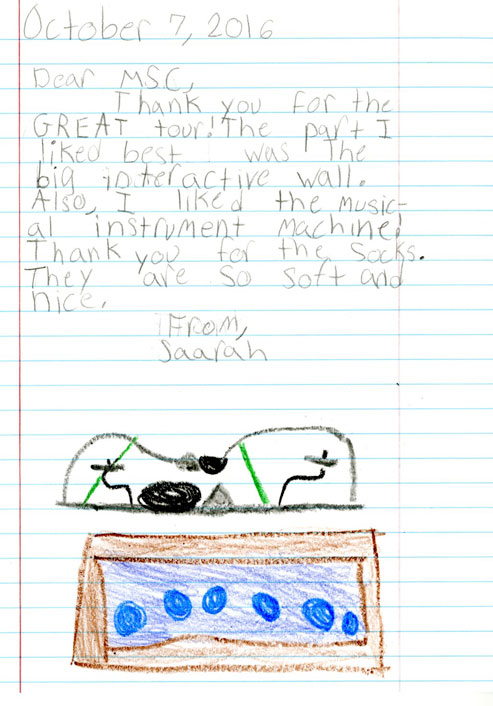 October 7, 2016
Dear M.S.C,
Thank you for the
GREAT tour! The part I
liked best was the
big interactive wall.
Also, I liked the music-
al instrument machine!
Thank you for the socks.
They are so soft and
nice.
From,
Saarah